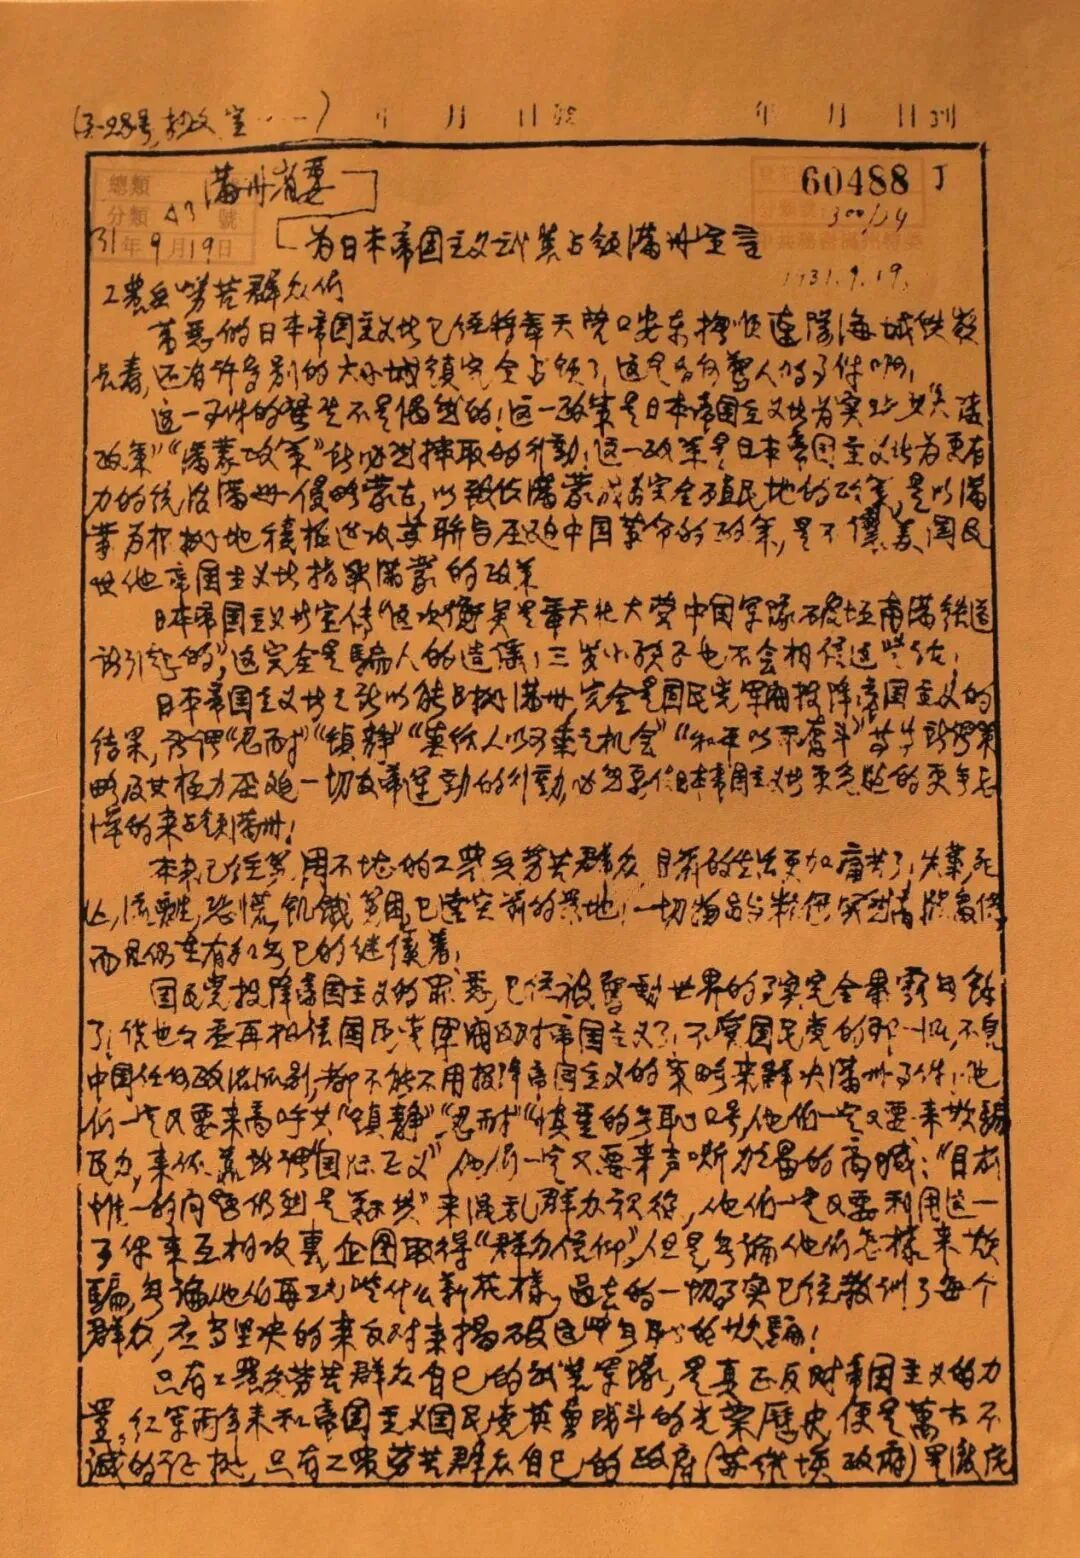 年 月 日到
60488
满州省委
總類
分類 A3 號
31年9月19日
1931.9.19.
为日本帝国主义武装占领满州宣言
工农兵劳苦群众们
万恶的日本帝国主义者已经将奉天营口安东抚顺辽阳海城铁岭
长春,还有许多别的大小城镇完全占领了,这是多么惊人的了件啊!
这一了件的发生不是偶然的!这一政策是日本帝国主义者为实现其“大陆
政策”“满蒙政策”所必然採取的行动!这一政策是日本帝国主义者为更有
力的统治满州侵略蒙古,以致使满蒙成为完全殖民地的政策,是以满
蒙为根据地积极进攻苏联与压迫中国革命的政策,
其他帝国主义者指染满蒙的政策
日本帝国主义者宣传“这次冲突是奉天北大营中国军隊破坏南满铁道
所引起的”,这完全是騙人的造谣,三岁小孩子也不会相信这些话!
日本帝国主义者之所以能占据满州,完全是国民党军阀投降帝国主义的
结果,所谓“忍耐”“镇静”“莫给人以可乘之机会”“和平以示奋斗”等等
略及其极力压迫一切反帝运动的行動,必然要使日本帝国主义者更急进的更无忌
惮的来占领满州!
本来已经穷困不堪的工农兵劳苦群众,目前的生活更加痛苦了,失业死
亡,流離,恐慌,飢餓穷困,已達空前的
而且仍在有加无已的继续著!
国民党投降帝国主义的罪恶,已经被驚動世界的了实完全暴露无餘
了!谁也不会再相信国民党军阀反对帝国主义了!不管国民党的那一派,不管
中国任何政治派别,都不能不用投降帝国主义的策略来解决满州了件!他
们一定又要来高呼其“镇静”“忍耐”“慎重”的无耻口号,他们一定又要来欺騙
民众,来依靠所謂“国际正义”他们一定又要来声嘶力竭的高喊:“目前
惟一的问题仍然是剿共”来混乱群众视线,他们一定又要利用这一
了件来互相攻衷,企图取得“群众信仰”,但是无論他们怎樣来欺
騙,无論他们再玩些什么新花樣,过去的一切了实已经教训了每个
群众,应当坚决的来反对来揭破这些无耻的欺騙!
只有工农兵劳苦群众自己的武装军隊,是真正反对帝国主义的力
量,红军两年来和帝国主义国民党英勇战斗的光荣歷史便是萬古不
滅的证据,只有工农劳苦群众自己的政府(苏维埃政府)是徹底